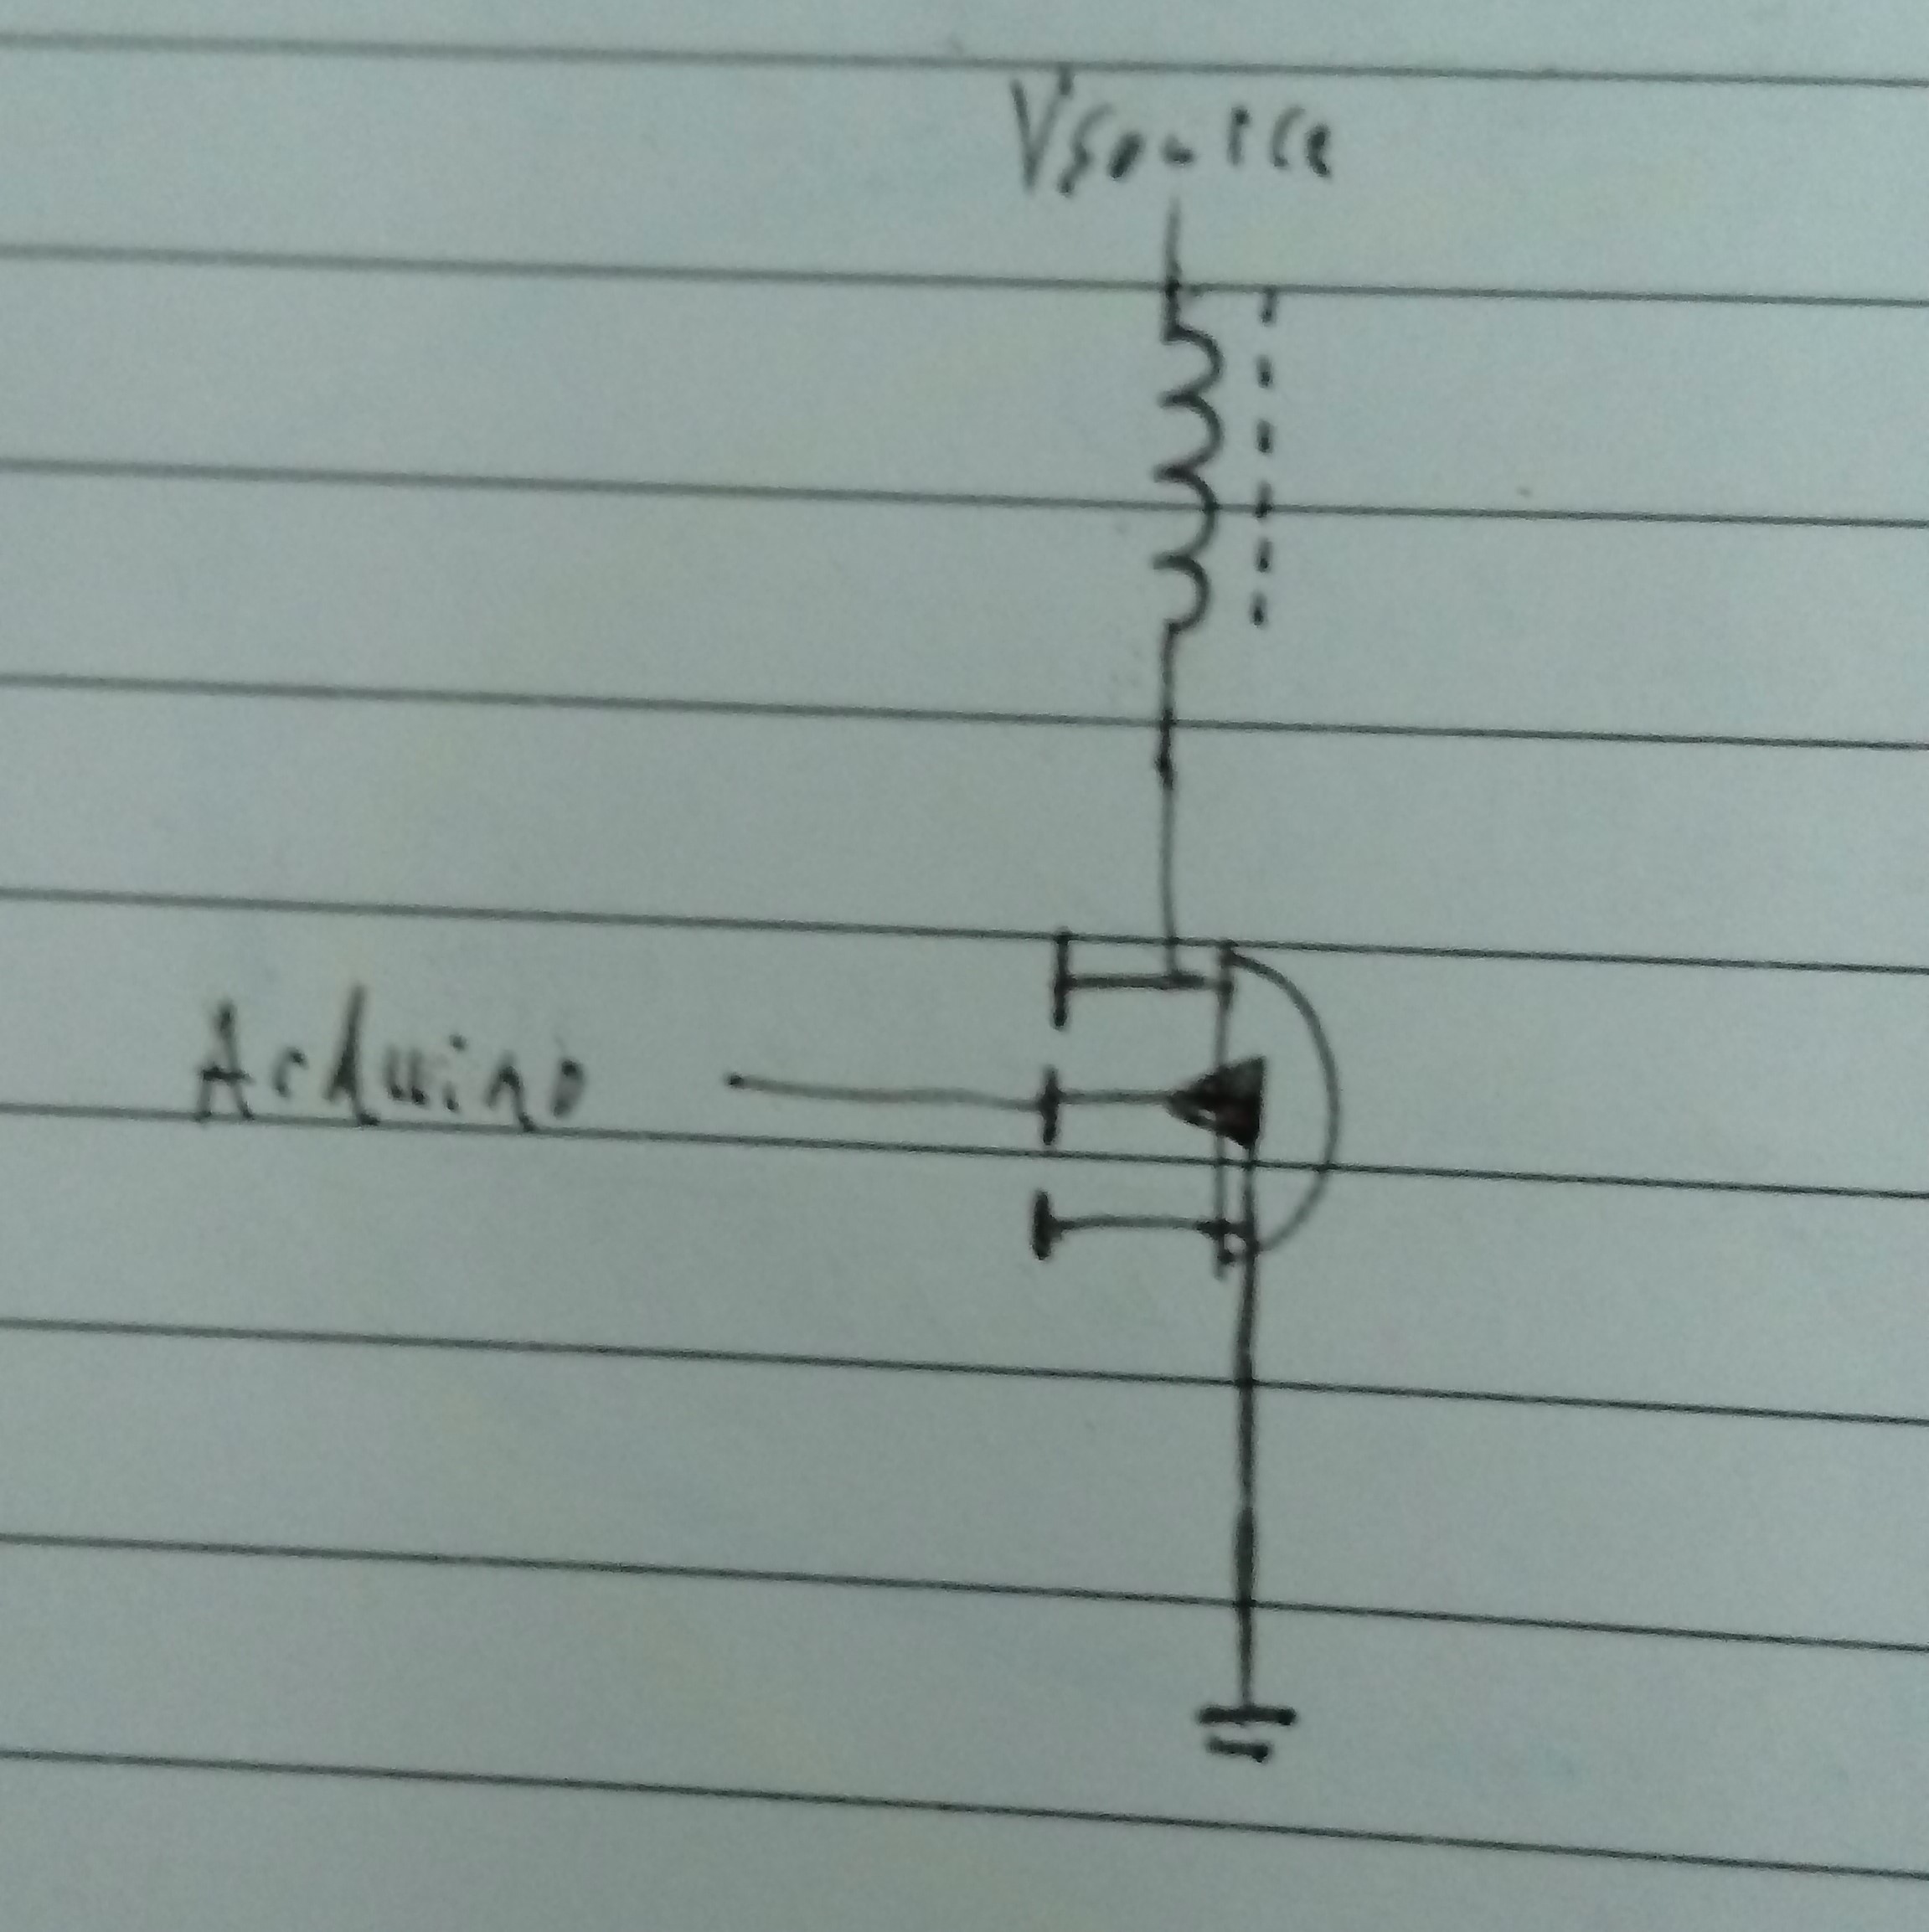 Vsource
Arduino